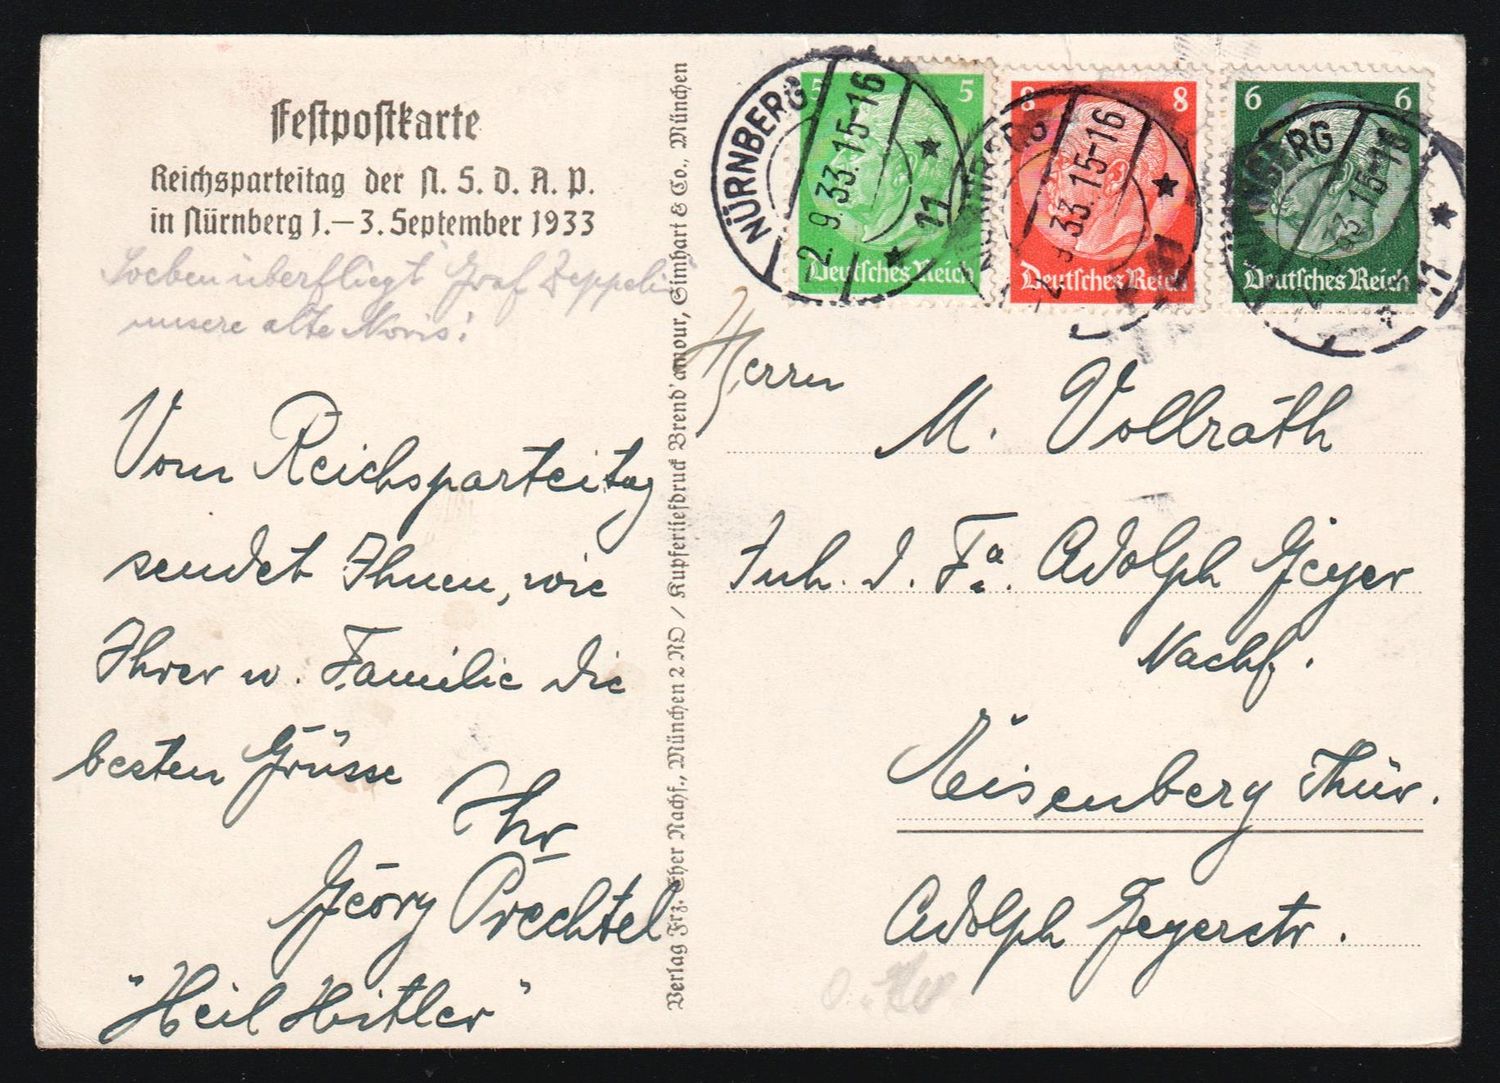 Festpostkarte
Reichsparteitag der N. S. D. A. P.
in Nürnberg 1.–3. September 1933
Soeben überfliegt Graf Zeppelin
unsere alte Noris!
Vom Reichsparteitag
sendet Ihnen, wie
Ihrer w. Familie die
besten Grüsse
Ihr
Georg Prechtel
"Heil Hitler"
Verlag Frz. Eher Nachf., München 2 NO / Kupfertiefdruck Brend'amour, Simhart & Co., München
5 5
Deutsches Reich
8 8
Deutsches Reich
6 6
Deutsches Reich
NÜRNBERG
2. 9 33.15-16
11
NÜRNBERG
2. 9 33.15-16
11
NÜRNBERG
33 15-16
11
Herrn
M. Vollrath
Inh. d. Fa. Adolph Geyer
Nachf.
Eisenberg Thür.
Adolph Geyerstr.